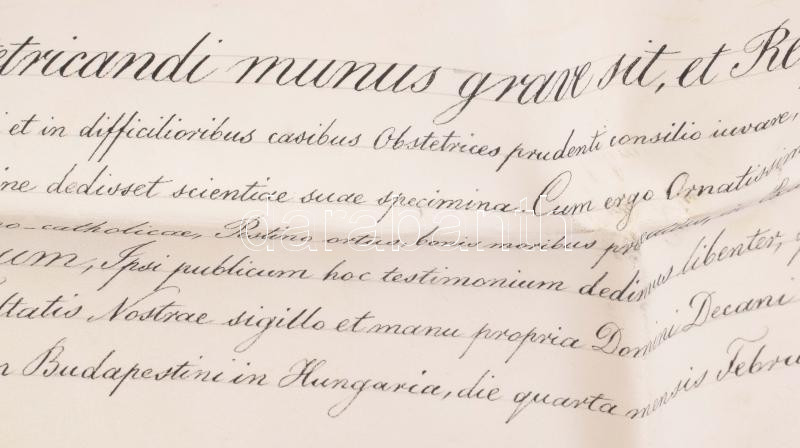 etricandi munus grave sit, et Re
i et in difficilioribus casibus Obstetrices prudenti consilio iuvare,
ne dedisset scientiae suae specimina. Cum ergo Ornatissim
no-catholicae, Pestino ortus, bonis moribus
um, Ipsi publicum hoc testimonium dedimus libenter,
ltatis Nostrae sigillo et manu propria Domini Decani
n Budapestini in Hungaria, die quarta mensis Febru
darabanth